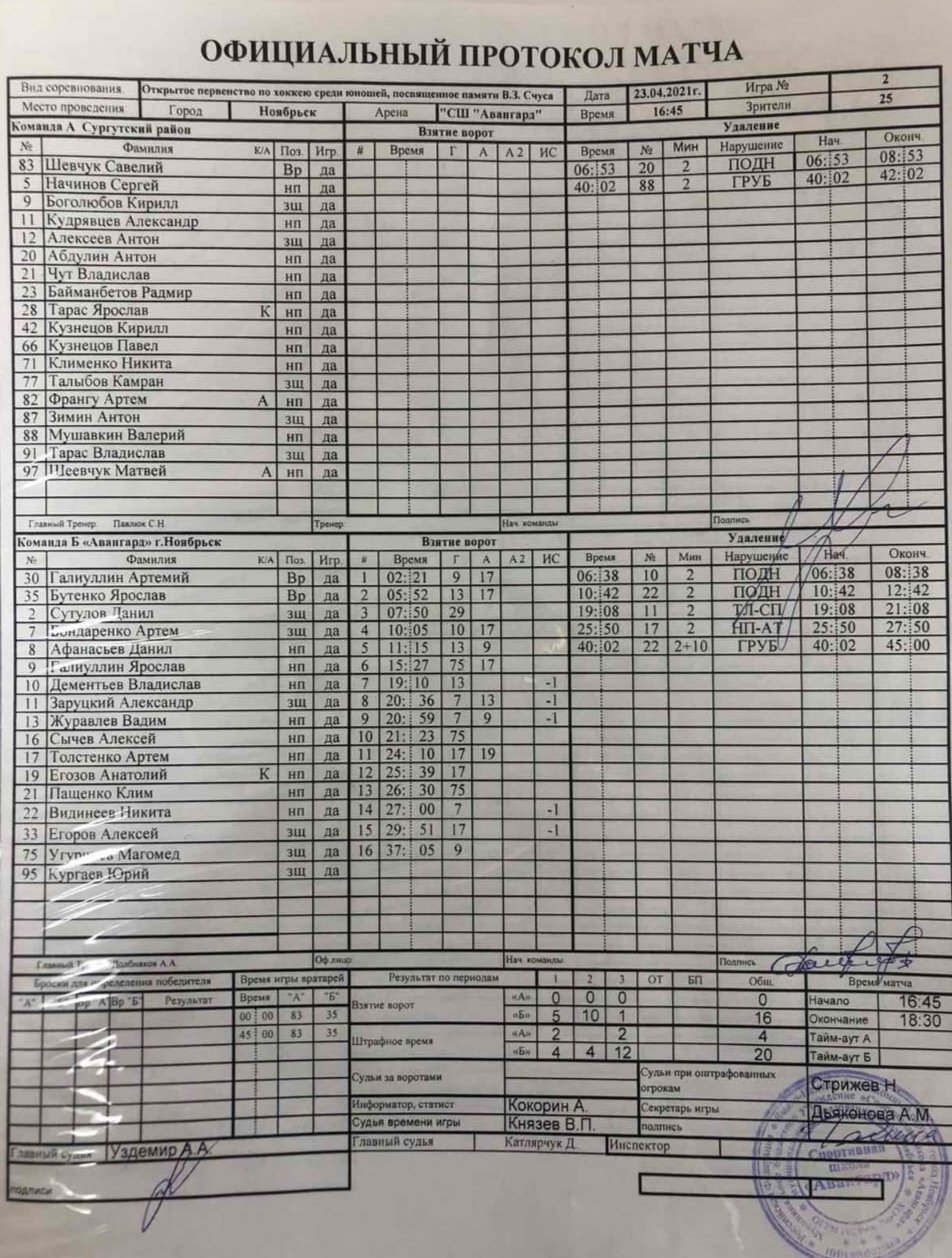 ОФИЦИАЛЬНЫЙ ПРОТОКОЛ МАТЧА
Вид соревнования. Открытое первенство по хоккею среди юношей, посвященное памяти В.З. Счуса Дата 23.04.2021г. Игра № 2
Место проведения Город Ноябрьск Арена "СШ "Авангард" Время 16:45 Зрители 25
Команда А Сургутский район Взятие ворот Удаление
№ Фамилия К/А Поз. Игр. # Время Г А А 2 ИС Время № Мин Нарушение Нач. Оконч.
83 Шевчук Савелий Вр да 06:53 20 2 ПОДН 06:53 08:53
5 Начинов Сергей нп да 40:02 88 2 ГРУБ 40:02 42:02
9 Боголюбов Кирилл зщ да
11 Кудрявцев Александр нп да
12 Алексеев Антон зщ да
20 Абдулин Антон нп да
21 Чут Владислав нп да
23 Байманбетов Радмир нп да
28 Тарас Ярослав К нп да
42 Кузнецов Кирилл нп да
66 Кузнецов Павел нп да
71 Клименко Никита нп да
77 Талыбов Камран зщ да
82 Франгу Артем А нп да
87 Зимин Антон зщ да
88 Мушавкин Валерий нп да
91 Тарас Владислав зщ да
97 Шеевчук Матвей А нп да
Главный Тренер Павлюк С.Н. Тренер Нач. команды Подпись
Команда Б «Авангард» г.Ноябрьск Взятие ворот Удаление
№ Фамилия К/А Поз. Игр. # Время Г А А 2 ИС Время № Мин Нарушение Нач. Оконч.
30 Галиуллин Артемий Вр да 1 02:21 9 17 06:38 10 2 ПОДН 06:38 08:38
35 Бутенко Ярослав Вр да 2 05:52 13 17 10:42 22 2 ПОДН 10:42 12:42
2 Сутулов Данил зщ да 3 07:50 29 19:08 11 2 ТЛ-СП 19:08 21:08
7 Бондаренко Артем зщ да 4 10:05 10 17 25:50 17 2 НП-АТ 25:50 27:50
8 Афанасьев Данил нп да 5 11:15 13 9 40:02 22 2+10 ГРУБ 40:02 45:00
9 Галиуллин Ярослав нп да 6 15:27 75 17
10 Дементьев Владислав нп да 7 19:10 13 -1
11 Заруцкий Александр зщ да 8 20:36 7 13 -1
13 Журавлев Вадим нп да 9 20:59 7 9 -1
16 Сычев Алексей нп да 10 21:23 75
17 Толстенко Артем нп да 11 24:10 17 19
19 Егозов Анатолий К нп да 12 25:39 17
21 Пащенко Клим нп да 13 26:30 75
22 Видинеев Никита нп да 14 27:00 7 -1
33 Егоров Алексей зщ да 15 29:51 17 -1
75 Магомед зщ да 16 37:05 9
95 Кургаев Юрий зщ да
Главный Долбнаков А.А. Оф.лицо Нач. команды Подпись
Броски для определения победителя Время игры вратарей Результат по периодам 1 2 3 ОТ БП Общ. Время матча
"А" Вр "Б" Результат Время "А" "Б" Взятие ворот «А» 0 0 0 0 Начало 16:45
00 00 83 35 «Б» 5 10 1 16 Окончание 18:30
45 00 83 35 Штрафное время «А» 2 2 4 Тайм-аут А
«Б» 4 4 12 20 Тайм-аут Б
Судьи за воротами Судьи при оштрафованных огрокам Стрижев Н.
Информатор, статист Кокорин А. Секретарь игры Дьяконова А.М.
Судья времени игры Князев В.П. подпись
Главный судья Уздемир А.А. Главный судья Катлярчук Д. Инспектор
подписи
Спортивная школа «Авангард»